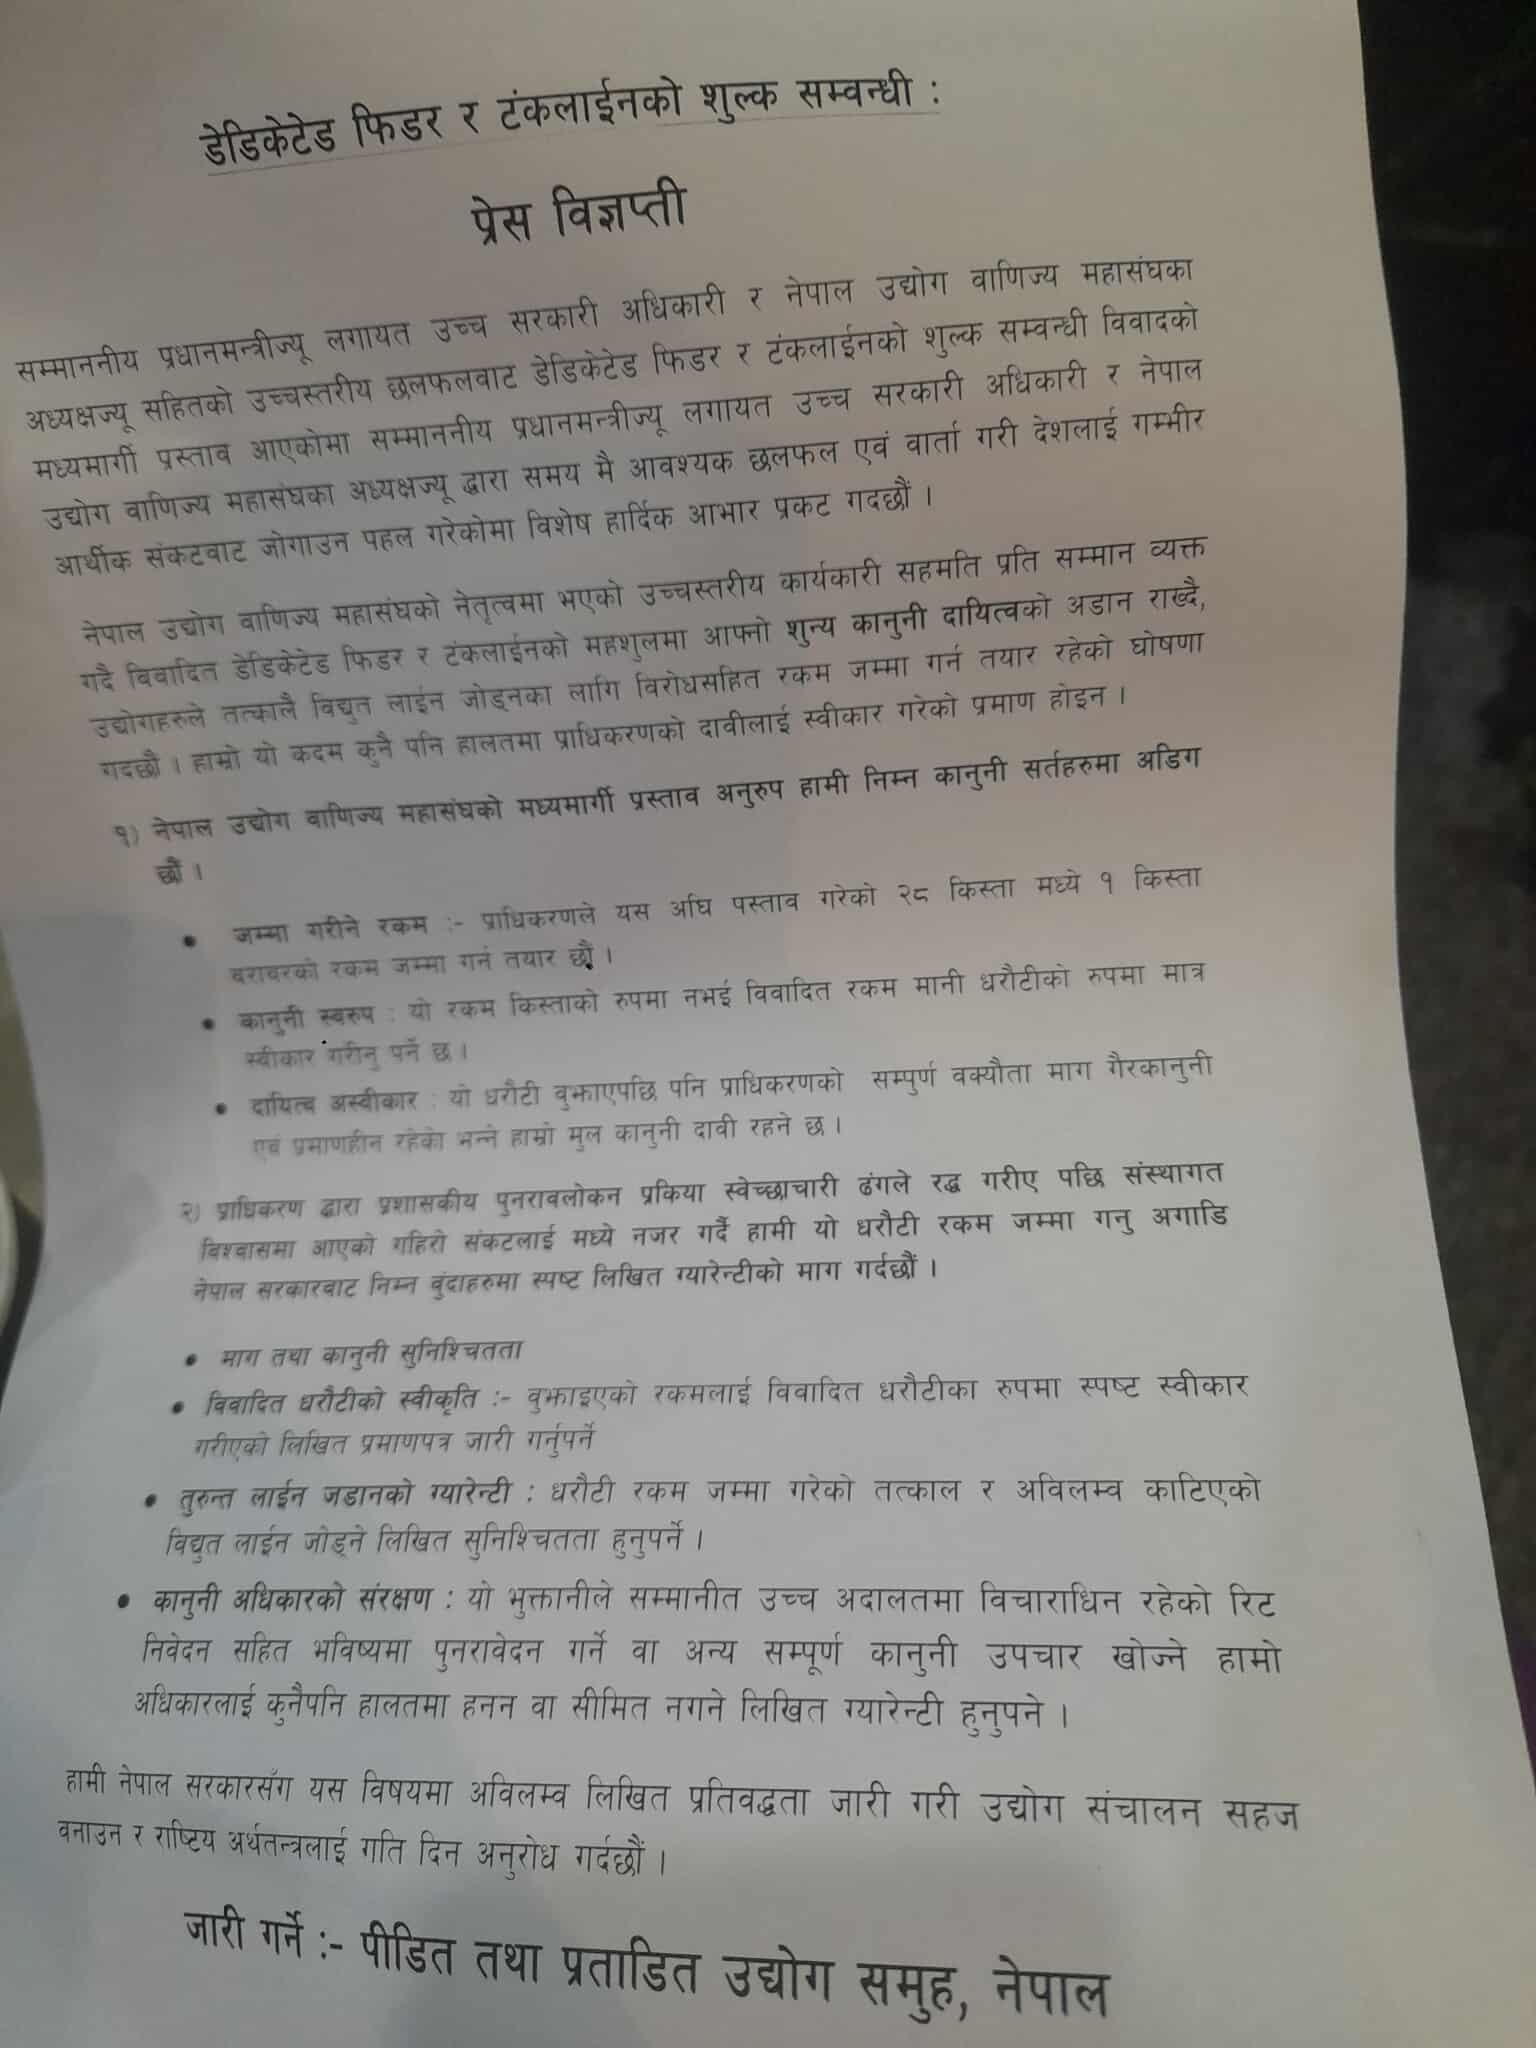 डेडिकेटेड फिडर र टंकलाईनको शुल्क सम्वन्धी :
प्रेस विज्ञप्ती
सम्माननीय प्रधानमन्त्रीज्यू लगायत उच्च सरकारी अधिकारी र नेपाल उद्योग वाणिज्य महासंघका
अध्यक्षज्यू सहितको उच्चस्तरीय छलफलवाट डेडिकेटेड फिडर र टंकलाईनको शुल्क सम्वन्धी विवादको
मध्यमार्गी प्रस्ताव आएकोमा सम्माननीय प्रधानमन्त्रीज्यू लगायत उच्च सरकारी अधिकारी र नेपाल
उद्योग वाणिज्य महासंघका अध्यक्षज्यू द्धारा समय मै आवश्यक छलफल एवं वार्ता गरी देशलाई गम्भीर
आर्थीक संकटवाट जोगाउन पहल गरेकोमा विशेष हार्दिक आभार प्रकट गदछौं ।
नेपाल उद्योग वाणिज्य महासंघको नेतृत्वमा भएको उच्चस्तरीय कार्यकारी सहमति प्रति सम्मान व्यक्त
गदै विवादित डेडिकेटेड फिडर र टंकलाईनको महशुलमा आफ्नो शुन्य कानुनी दायित्वको अडान राख्दै,
उद्योगहरुले तत्कालै विद्युत लाईन जोड्नका लागि विरोधसहित रकम जम्मा गर्न तयार रहेको घोषणा
गदछौ । हाम्रो यो कदम कुनै पनि हालतमा प्राधिकरणको दावीलाई स्वीकार गरेको प्रमाण होइन ।
१) नेपाल उद्योग वाणिज्य महासंघको मध्यमार्गी प्रस्ताव अनुरुप हामी निम्न कानुनी सर्तहरुमा अडिग
छौं ।
• जम्मा गरीने रकम :- प्राधिकरणले यस अघि पस्ताव गरेको २८ किस्ता मध्ये १ किस्ता
वरावरको रकम जम्मा गर्न तयार छौं ।
• कानुनी स्वरुप : यो रकम किस्ताको रुपमा नभई विवादित रकम मानी धरौटीको रुपमा मात्र
स्वीकार गरीनु पर्ने छ ।
• दायित्व अस्वीकार : यो धरौटी वुझाएपछि पनि प्राधिकरणको सम्पुर्ण वक्यौता माग गैरकानुनी
एवं प्रमाणहीन रहेको भन्ने हाम्रो मुल कानुनी दावी रहने छ ।
२) प्राधिकरण द्वारा प्रशासकीय पुनरावलोकन प्रकिया स्वेच्छाचारी ढंगले रद्ध गरीए पछि संस्थागत
विश्वासमा आएको गहिरो संकटलाई मध्ये नजर गर्दै हामी यो धरौटी रकम जम्मा गनु अगाडि
नेपाल सरकारवाट निम्न वुंदाहरुमा स्पष्ट लिखित ग्यारेन्टीको माग गर्दछौं ।
• माग तथा कानुनी सुनिश्चितता
• विवादित धरौटीको स्वीकृति :- वुझाइएको रकमलाई विवादित धरौटीका रुपमा स्पष्ट स्वीकार
गरीएको लिखित प्रमाणपत्र जारी गर्नुपर्ने
• तुरुन्त लाईन जडानको ग्यारेन्टी : धरौटी रकम जम्मा गरेको तत्काल र अविलम्व काटिएको
विद्युत लाईन जोड्ने लिखित सुनिश्चितता हुनुपर्ने ।
• कानुनी अधिकारको संरक्षण : यो भुक्तानीले सम्मानीत उच्च अदालतमा विचाराधिन रहेको रिट
निवेदन सहित भविष्यमा पुनरावेदन गर्ने वा अन्य सम्पूर्ण कानुनी उपचार खोज्ने हामो
अधिकारलाई कुनैपनि हालतमा हनन वा सीमित नगने लिखित ग्यारेन्टी हुनुपने ।
हामी नेपाल सरकारसँग यस विषयमा अविलम्व लिखित प्रतिवद्धता जारी गरी उद्योग संचालन सहज
वनाउन र राष्टिय अर्थतन्त्रलाई गति दिन अनुरोध गर्दछौं ।
जारी गर्ने :- पीडित तथा प्रताडित उद्योग समुह, नेपाल